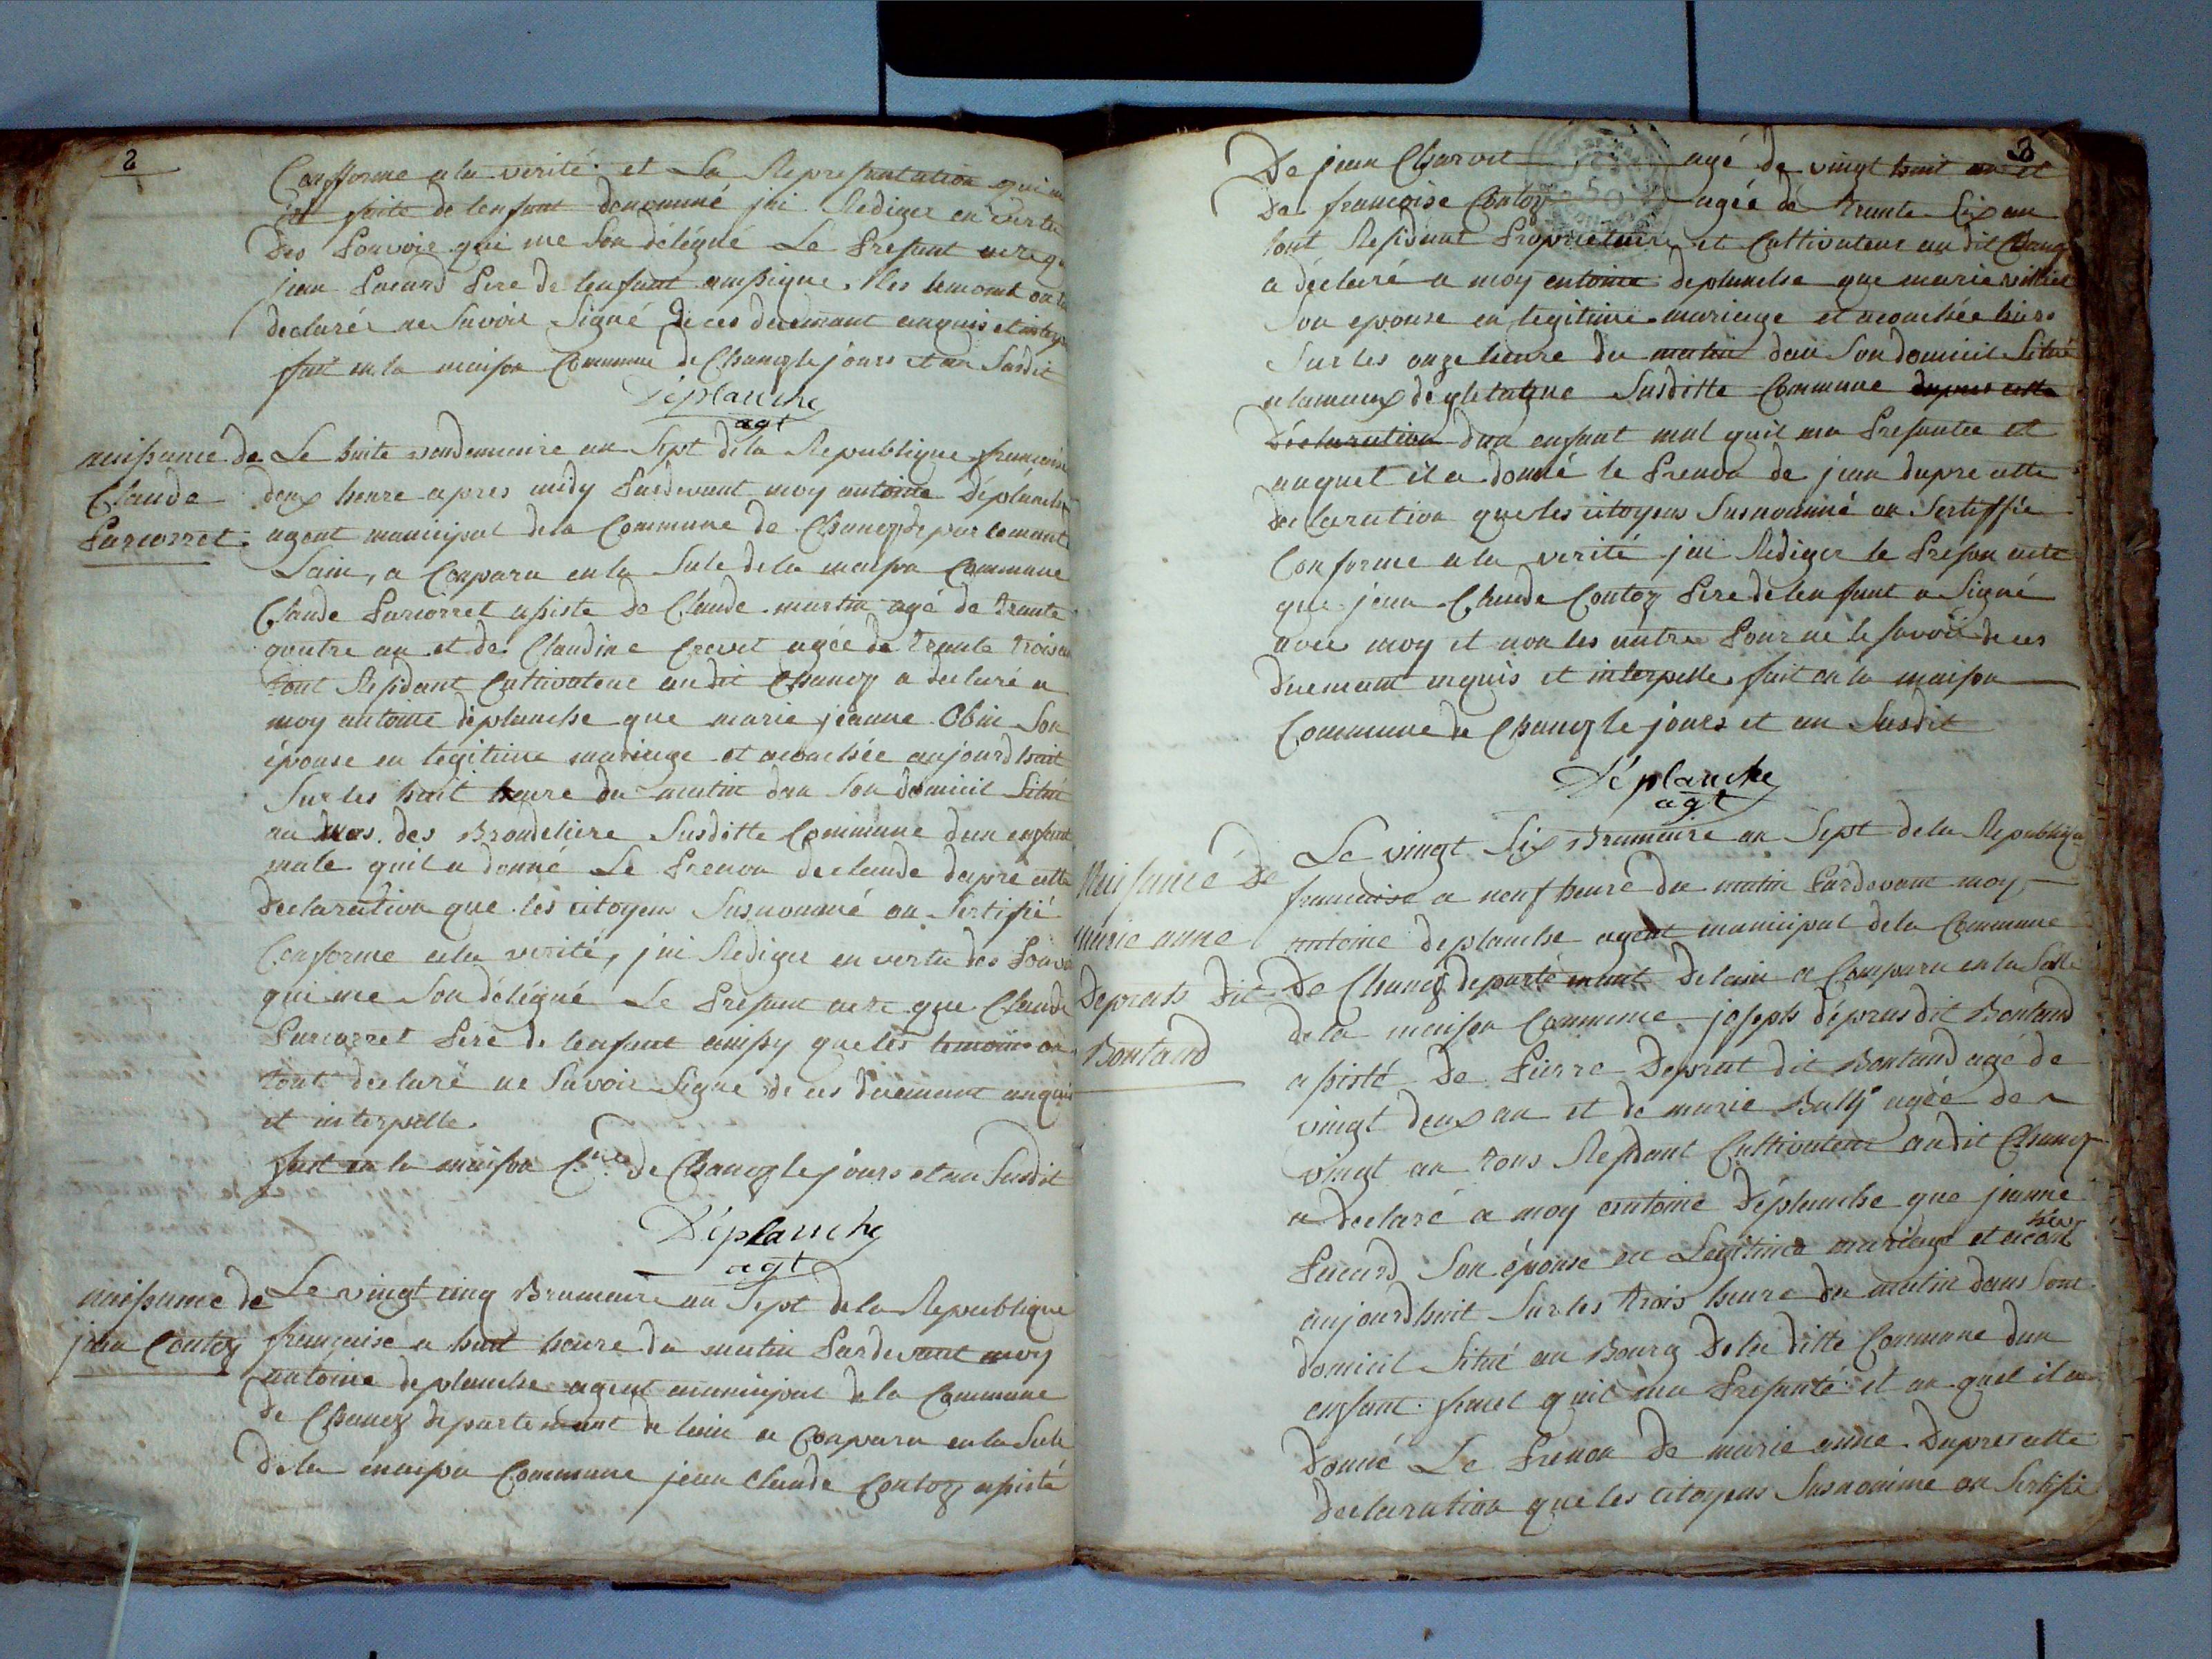 2
Conforme a la verité et La Represantation qui
est faite de lenfant denommé jai Rediger en vertu
Des Pouvoir qui me Son délégué Le Presant acte que
jean Pacard Pere de lenfant
declaré ne Savoir Signé De ces duemant anquis et
fait en la maison Commune de Chanoz le jours et an Susdit
Déplanche
agt
naissance de
Claude
Parcorret
Le huite vendemiaire an Sept de la Republique francaise
deux heure apres midy Pardevant moy antoine Déplanche
agent municipal de la Commune de Chanoz departemant
Lain, a Conparu en la Sale de la maison Commune
Claude Parcorret asisté de Claude martin agé de Trante
quatre an et de Claudine Crevet agée de Trante trois an
tout Residant Cultivateur audit Chanoz a declaré a
moy antoine déplanche que marie jeanne Obin Son
épouse en legitime mariage et acouchée aujourdhuit
Sur les huit heure du matin dan Son domicil Situé
au Mas des Brondeliere Susditte Commune dun enfant
male quil a donné Le Prenon de claude dapre cette
Declaration que les citoyens Susnommé on Sertifié
Conforme a la verité, jai Rediger en vertu des Pouvoir
qui me Son délégué Le Presant acte que Claude
Parcorret Pere de lenfant ainssy que les temoins on
tout declaré ne Savoir Signé de ces duemant anquis
et interpellé.
fait en la maison C.ne de Chanoz le jours et an Susdit
Déplanche
agt
naissance de
jean Contoz
Le vingt cinq Brumaire an Sept de la Republique
française a huit heure du matin Pardevant moy
antoine deplanche agent municipal de la Commune
de Chanoz departemant de lain a Conparu en la Sale
de la maison Commune jean Claude Contoz asisté
3
De jean Charvet agé de vingt huit an et
De francoise Contoz agée de Trante Six an
tout Residant Proprietaire et Cultivateur au dit Chanoz
a déclaré a moy antoine deplanche que marie
Son epouse en legitime mariage et acouchée hiere
Sur les onze heure du matin dan Son domicil Situé
Susditte Commune dapres cette
Déclaration dun enfant mal quil ma Presantée et
auquel il a donné le Prenon de jean dapre cette
Declaration que les citoyens Susnommé on Sertiffié
Conforme a la verité jai Rediger le Presan acte
que jean Claude Contoz Pere de lenfant a Signé
avec moy et non les autres Pour ne le Savoir de ces
Duemant enquis et interpelle. fait en la maison
Commune de Chanoz le jours et an Susdit
Déplanche
agt
Naissance De
Marie anne
Deprats Dit
Bontand
Le vingt Six Brumaire an Sept de la Republique
francaise a neuf heure du matin Pardevant moy
antoine deplanche agent municipal de la Commune
De Chanoz departemant De lain a Comparu en la Salle
de la maison Commune joseph dépras dit Bontand
asisté De Pierre Deprat dit Bontand agé de
vingt deux an et de marie Bally agée de
vingt an tous Residant Cultivateur audit Chanoz
a Declaré a moy antoine Déplanche que jeanne
Pacard Son épouse en Legitime mariage et acou
chée
aujourdhuit Sur les trois heure du matin dans Son
domicil Situé au Bourg De la ditte Commune dun
enfant femel quil ma Presanté et au quel il a
donné Le Prenon De marie anne. Dapres cette
declaration que les citoyens Susnommé on Sertifié